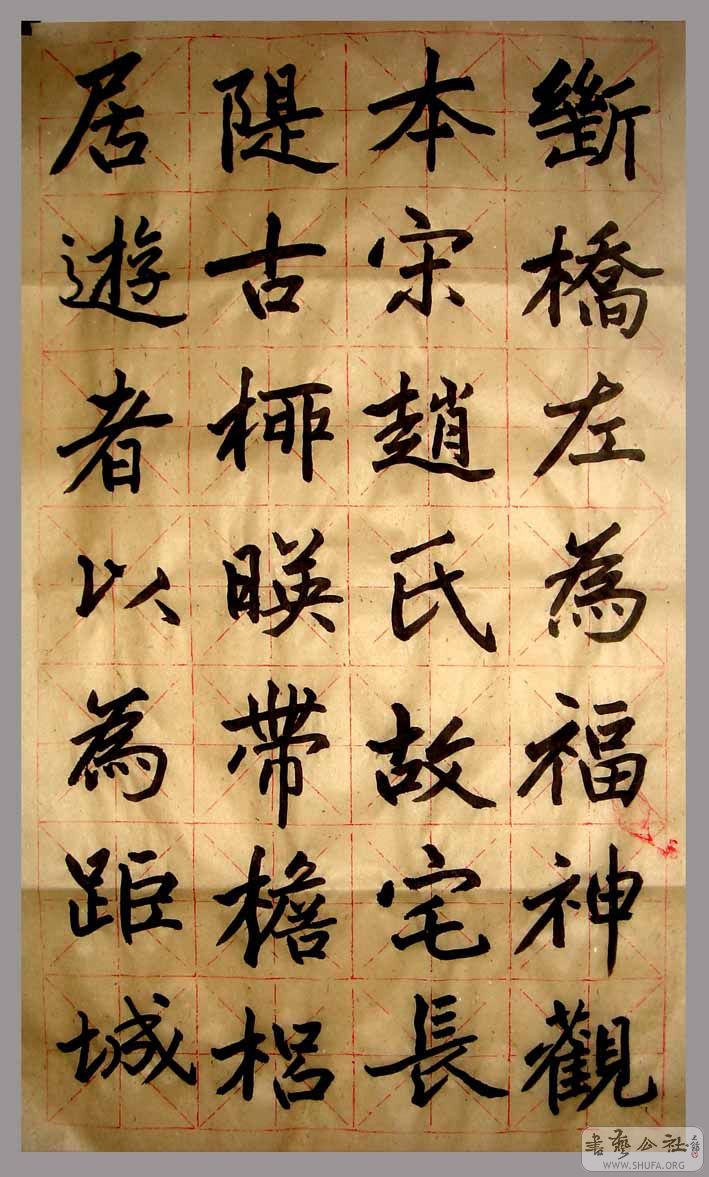 斷橋左為福神觀
本宋趙氏故宅長
隄古栁暎帶檐梠
居遊者以為距城
書藝公社
WWW.SHUFA.ORG